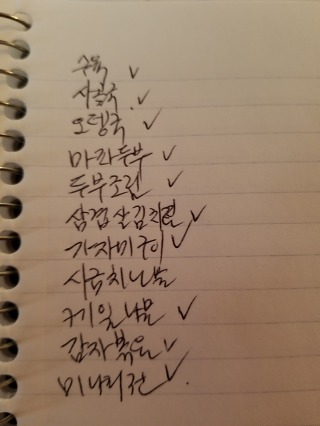 수육 ✓
사골국 ✓
오뎅국 ✓
마라두부 ✓
두부조림 ✓
삼겹살김치찜 ✓
가자미구이 ✓
시금치나물
케일나물 ✓
감자볶음 ✓
미나리전 ✓